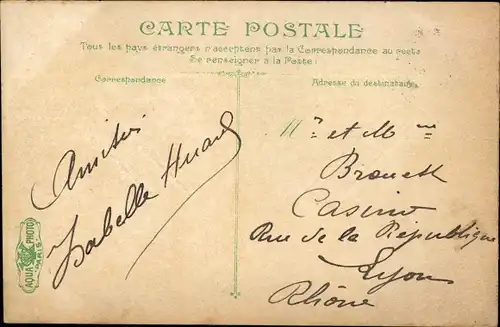 CARTE POSTALE
Tous les pays étrangers n'acceptent pas la Correspondance au recto
Se renseigner à la Poste
Correspondance
Adresse du destinataire
Amitiés
Isabelle Huard
AQUA PHOTO
PARIS
Mr et Mme
Casino
Rue de la République
Lyon
Rhône